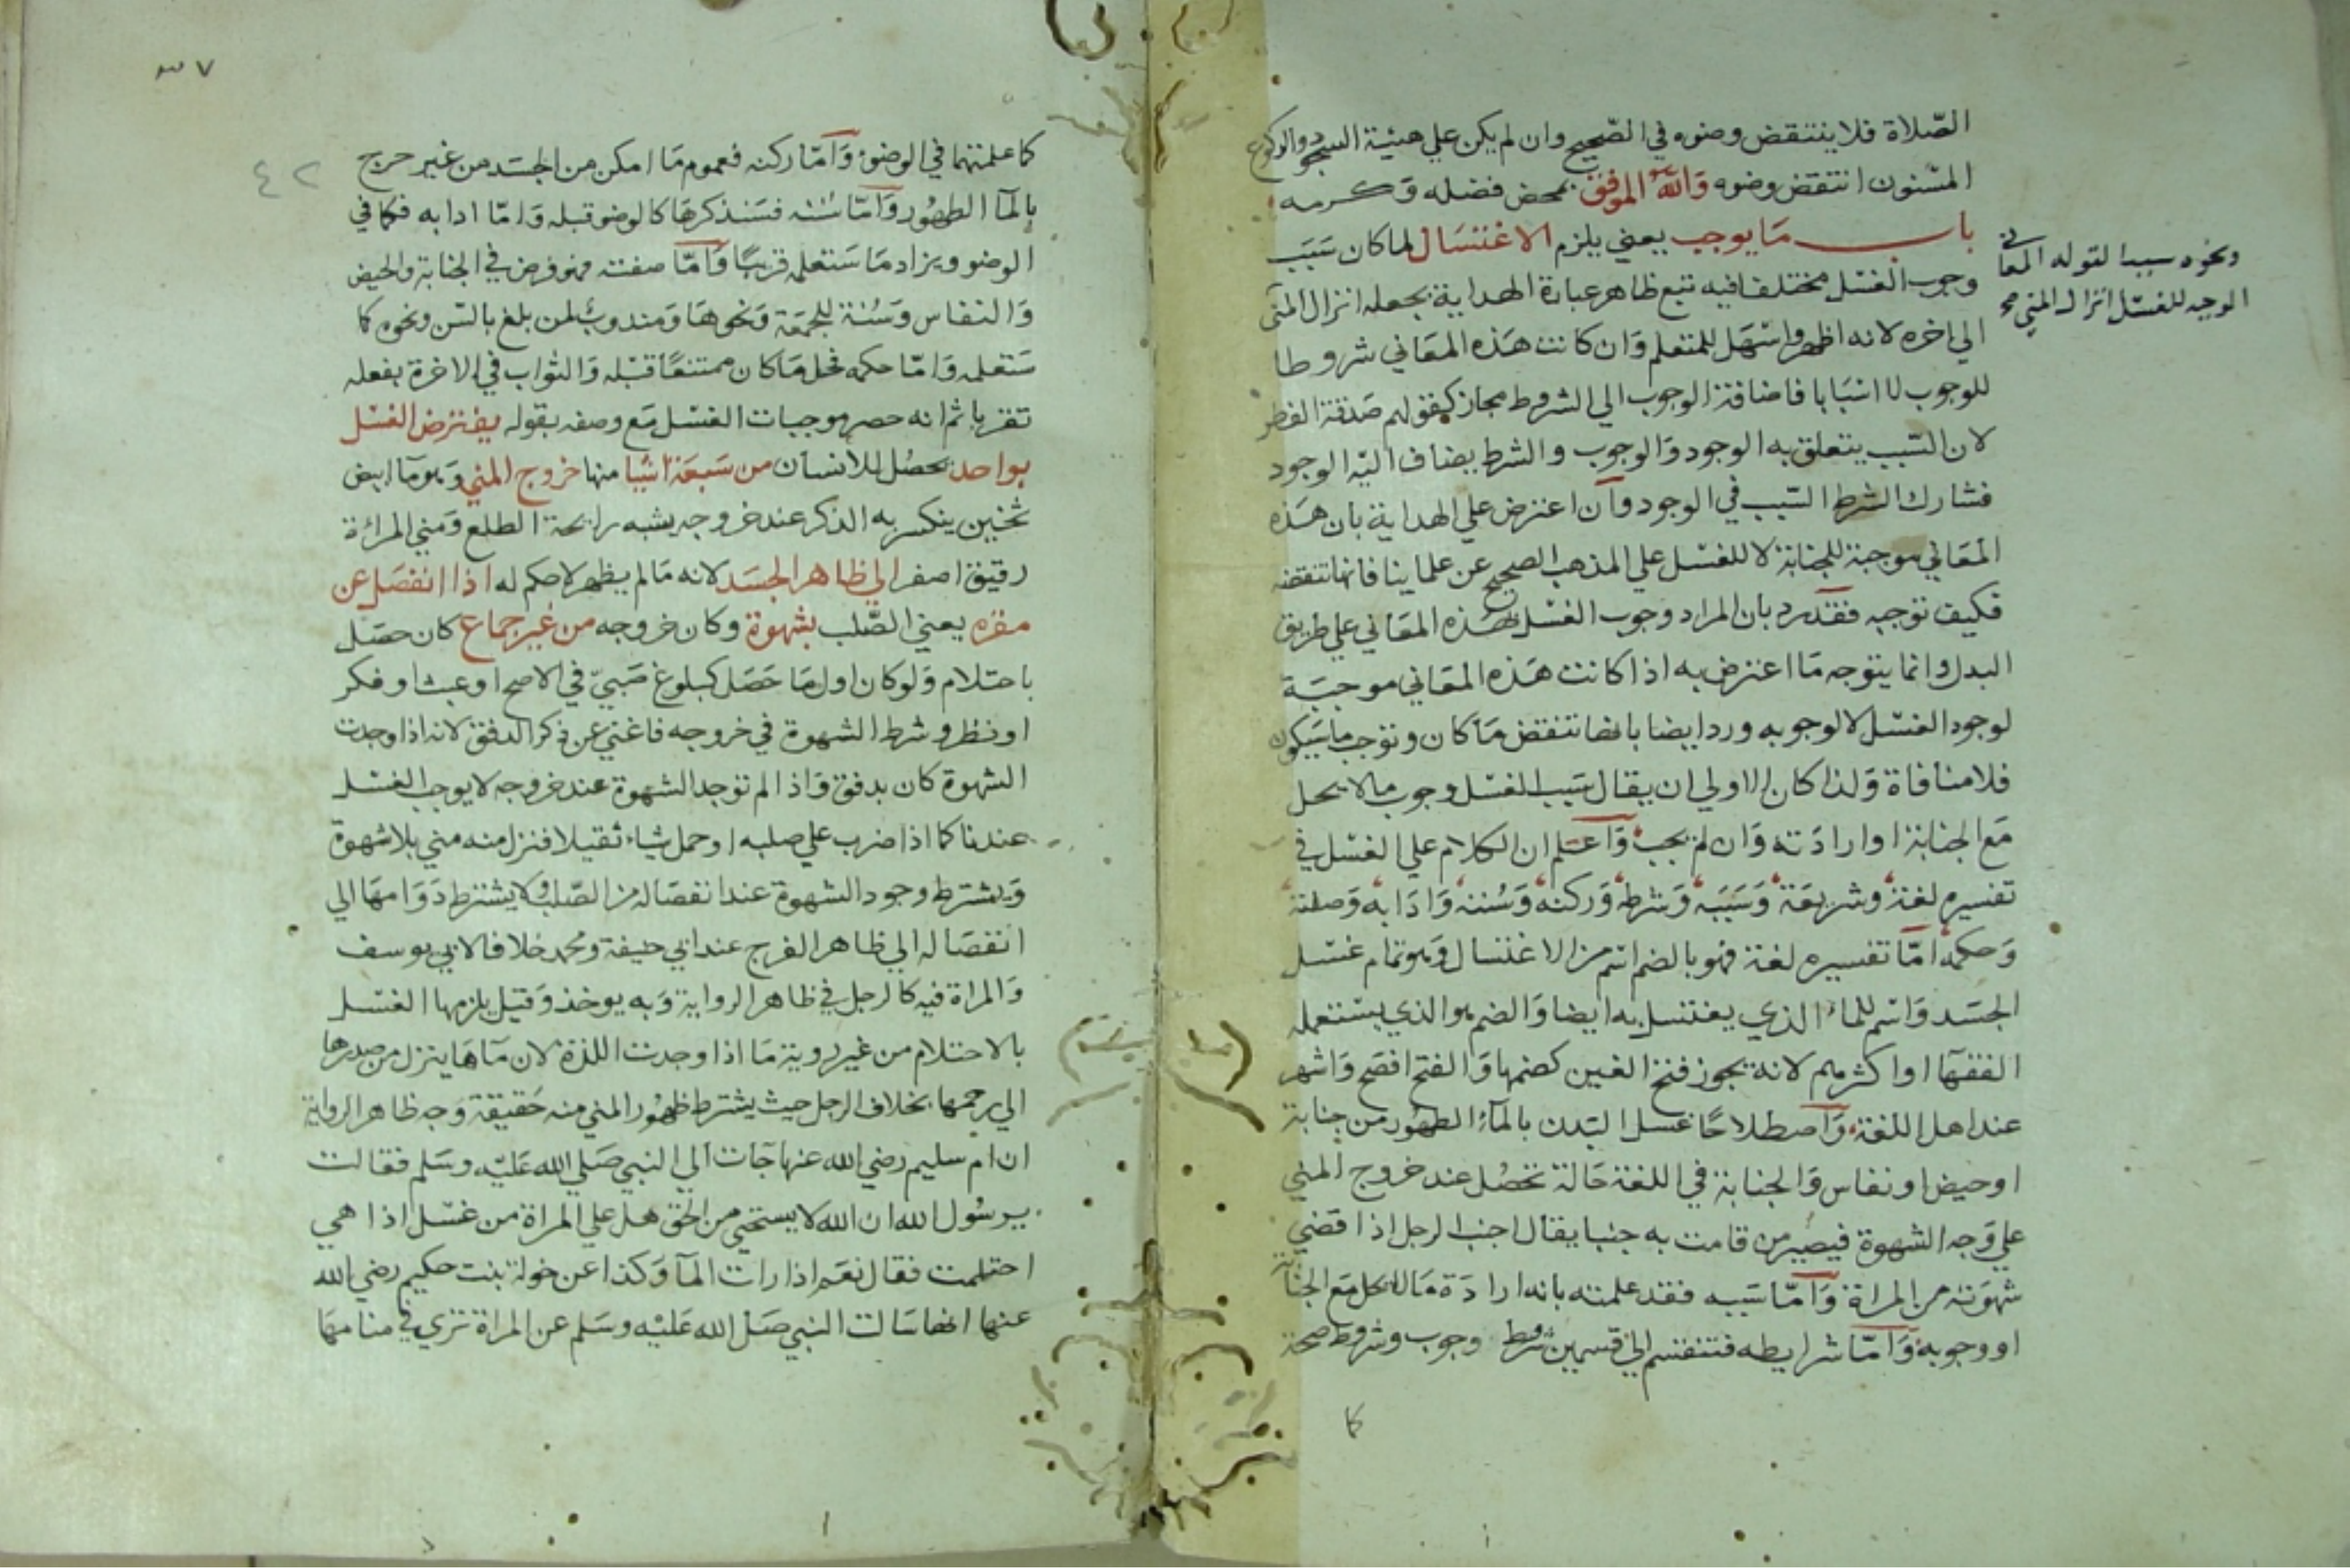 الصّلاة فلا ينتقض وضوه في الصّحيح وان لم يكن علي هيئة السجود والركوع
المسنون انتقض وضوه وَاللّهُ الموفق بمحض فضله وَكرمه
باب مَا يوجب يعني يلزم الاغتسَال لما كان سَبَب
وجوب الغسْل مختلفا فيه تبع ظاهر عبارة الهداية بجعله انزال المني
الي اخره لانه اظهر واسْهَل للمتعلم وَان كانت هَذه المعَاني شروطا
للوجوب لا اسْبَابا فاضافة الوجوب الي الشروط مجاز كقولهم صَدقة الفطر
لان السّبب يتعلق به الوجود وَالوجوب والشرط يضاف اليْه الوجود
فشارك الشرط السّبب في الوجود وان اعترض علي الهداية بان هَذه
المعَاني موجبة للجنابة لا للغسْل علي المذهب الصحيح عن علماينا فانها تنقضه
فكيف توجبه فقد رد بان المراد وجوب الغسْل بهَذه المعَاني علي طريق
البدل وانما يتوجه مَا اعترض به اذا كانت هَذه المعَاني موجبَة
لوجود الغسْل لا لوجوبه ورد ايضا بانها تنقض مَا كان وتوجب ما سَيكون
فلا منافاة وَلذا كان الاولي ان يقال سَبب الغسْل وجوب ما لا يحل
مَع الجنابة او ارادَته وَان لم يجب وَاعْلم ان الكلام علي الغسْل في
تفسيره لغة وشريعَة وَسَبَبه وَشرطه وَركنه وَسُننه وَادَابه وَصفته
وَحكمه امّا تفسيره لغة فهو بالضم اسْم من الاغتسال وَهو تمام غسْل
الجسَد وَاسْم للماء الذي يغتسل به ايضا وَالضم هو الذي يسْتعمله
الفقهَا او اكثرهم لانه يجوز فتح الغين كضمها وَالفتح افصَح وَاشهر
عند اهل اللغة وَاصطلاحًا غسل البَدن بالمآء الطهُور من جنابة
او حيض او نفاس وَالجنابة في اللغة حَالة تحصُل عند خروج المني
علي وَجه الشهوة فيصير من قامت به جنبا يقال اجنب الرجل اذا قضي
شهوَته من المراة وَامّا سَببه فقد علمته بانه ارادَة مَا لا يحل مَع الجنابة
او وجوبه وَامّا شرايطه فتنقسم الي قسمين شروط وجوب وشروط صحة
كا
ونحوه سببا لقوله المعاني
الموجبه للغسْل انزال المني صح
٣٧
٤٢
كا علمتهما في الوضوء وَامّا ركنه فعموم مَا امكن من الجسَد من غير حرج
بالمآ الطهُور وَامّا سننه فسَنذكرهَا كالوضو قبله وَامّا ادابه فكما في
الوضو ويزاد مَا سَتعلمه قريبًا وَامّا صفته فهو فرض في الجنابة والحيض
وَالنفاس وَسُنة للجمعَة وَنحوهَا وَمندوبٌ لمن بلغ بالسّن ونحوه كا
سَتعلمه وَامّا حكمه فحل مَا كان ممتنعًا قبْله وَالثواب في الاخرة بفعله
تقربا ثم انه حصر موجبات الغسْل مَع وصفه بقوله يفترض الغسْل
بواحد يحصُل للانسان من سَبعَة اشيَا منها خروج المني وَهو مآ ابيض
ثخين ينكسر به الذكر عند خروجه يشبه رايحة الطلع وَمني المراة
رقيق اصفر الي ظاهر الجسَد لانه مَا لم يظهر لا حكم له اذا انفصَل عن
مقره يعني الصّلب بشهوة وكان خروجه من غير جماع كان حصَل
باحتلام وَلو كان اول مَا حَصَل كبلوغ صَبيّ في الاصح او عبث او فكر
او نظر وشرط الشهوة في خروجه فاغني عن ذكر الدفق لانه اذا وجدت
الشهوة كان بدفق وَاذا لم توجد الشهوة عند خروجه لا يوجب الغسْل
عندنا كما اذا ضرب علي صلبه او حمل شياء ثقيلا فنزل منه مني بلا شهوة
وَيشترط وجود الشهوة عند انفصَاله من الصّلب ولا يشترط دَوَامهَا الي
انفصَاله الي ظاهر الفرج عند ابي حنيفة ومحمد خلافا لابي يوسف
وَالمراة فيه كالرجل في ظاهر الرواية وَبه يوخذ وَقيل يلزمها الغسْل
بالاحتلام من غير روية مَا اذا وجدت اللذة لان مَآهَا ينزل من صدرها
الي رحمها بخلاف الرجل حيث يشترط ظهُور المني منه حَقيقة وَجه ظاهر الرواية
ان ام سليم رضي الله عنها جآت الي النبي صَلي الله عَليْه وسَلم فقالت
يرسُول الله ان الله لا يستحي من الحق هل علي المراة من غسْل اذا هي
احتلمت فقال نعَم اذا رات المآ وَكذا عن خولة بنت حكيم رضي الله
عنها انها سَالت النبي صَلي الله عَليْه وسَلم عن المراة تري في منامهَا